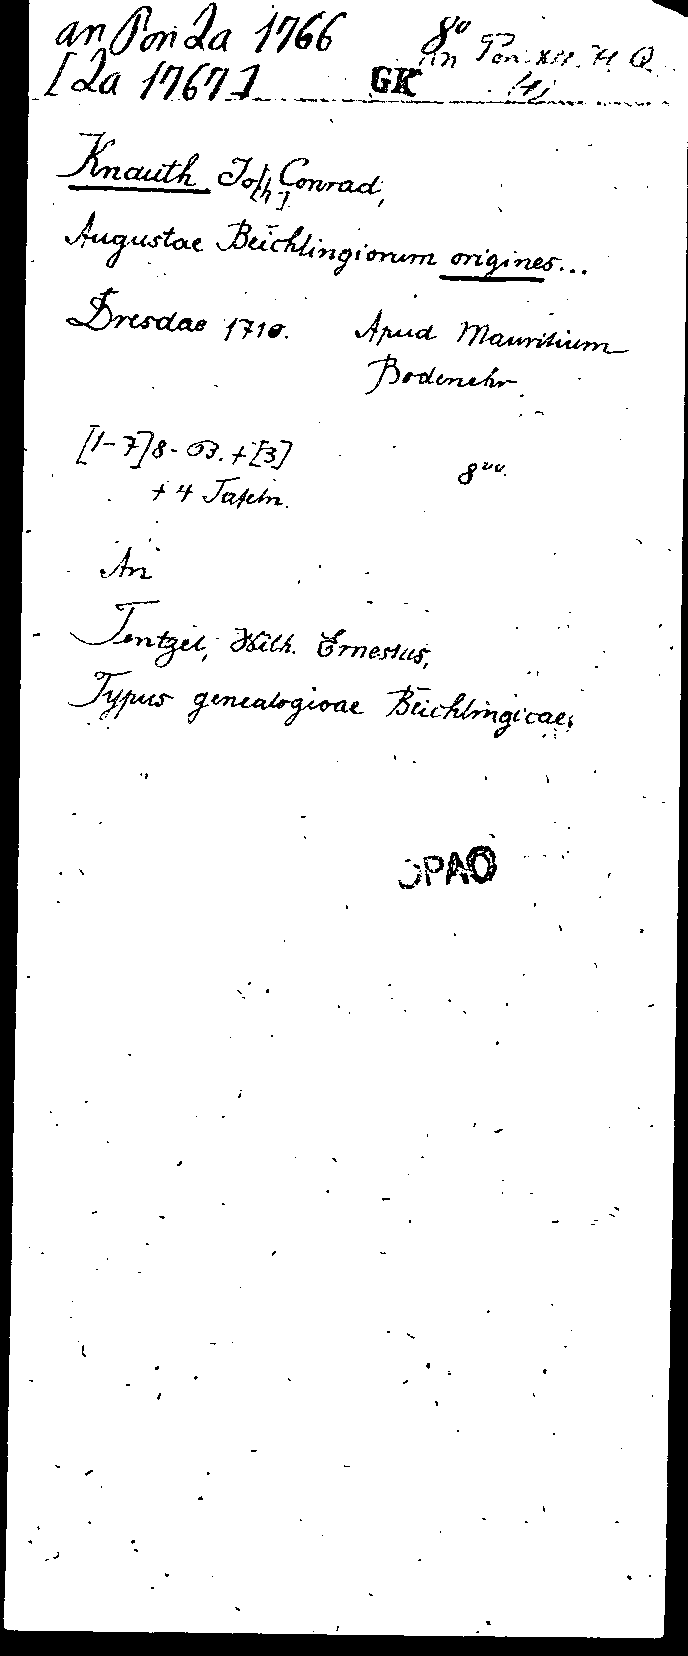 an Pon 2a 1766
8° An Pon XII. H Q
[2a 1767]
GK
Knauth Jo[h] Conrad,
Augustae Beichlingiorum origines...
Dresdae 1710. Apud Mauritium
Bodenehr
[1-7]8-63.+[3]
8vo.
+ 4 Tafeln.
An
Tentzel, Wilh. Ernestus,
Typus genealogicae Beichlingicae.
OPAO